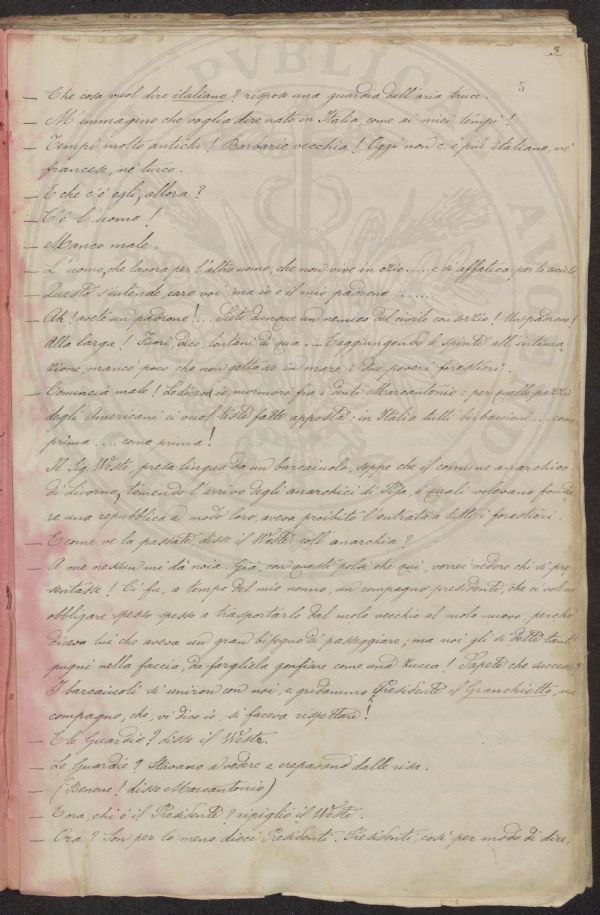 3
5
— Che cosa vuol dire italiano? rispose una guardia dall'aria truce.
— M'immagino che voglia dire nato in Italia come ai miei tempi!
— Tempi molto antichi! Barbarie vecchia! Oggi non c'è più italiano, nè
francese, nè turco.
— E che c'è egli, allora?
— C'è l'uomo!
— Manco male.
— L'uomo, che lavora per l'altro uomo, che non vive in ozio..... e si affatica per la società
— Questo s'intende, caro voi, ma io e il mio padrone.......
— Ah! avete un padrone!... Siete dunque un nemico del civile consorzio! Un padrone!
Alla larga! Fuori, dico, lontani di qua. — E aggiungendo le spinte all'intima-
zione, mancò poco che non gettasse in mare i due poveri forestieri.
— Comincia male! Lo dicevo io, mormorò fra i denti Marcantonio: per quelle pazzie
degli Americani ci vuol teste fatte apposta: in Italia tutti birbaccioni.... come
prima.... come prima!
Il Sig. Weste, presa lingua da un barcaiuolo, seppe che il comune anarchico
di Livorno, temendo l'arrivo degli anarchici di Pisa, i quali volevano fonda-
re una repubblica a modo loro, aveva proibito l'entrata a tutti i forestieri.
— E come ve la passate, disse il Weste coll'anarchia?
— A me nessun mi dà noia. Già, con questi polsi che qui, vorrei vedere chi si pre
sentasse! Ci fu, a tempo del mio nonno, un compagno presidente, che ci voleva
obbligare spesso spesso a trasportarlo dal molo vecchio al molo nuovo, perchè
diceva lui che aveva un gran bisogno di passeggiare; ma noi gli si dette tanti
pugni nella faccia, da fargliela gonfiare come una zucca! Sapete che successe?
I barcaiuoli si uniron con noi, e gridammo Presidente il Granchietto, un
compagno, che, vi dico io, si faceva rispettare!
— E le Guardie? disse il Weste.
— Le Guardie? Stavano a vedere e crepavano dalle risa.
— (Benone! disse Marcantonio)
— E ora, chi è il Presidente? ripigliò il Weste.
— Ora? Son per lo meno dieci Presidenti. Presidenti, così per modo di dire,